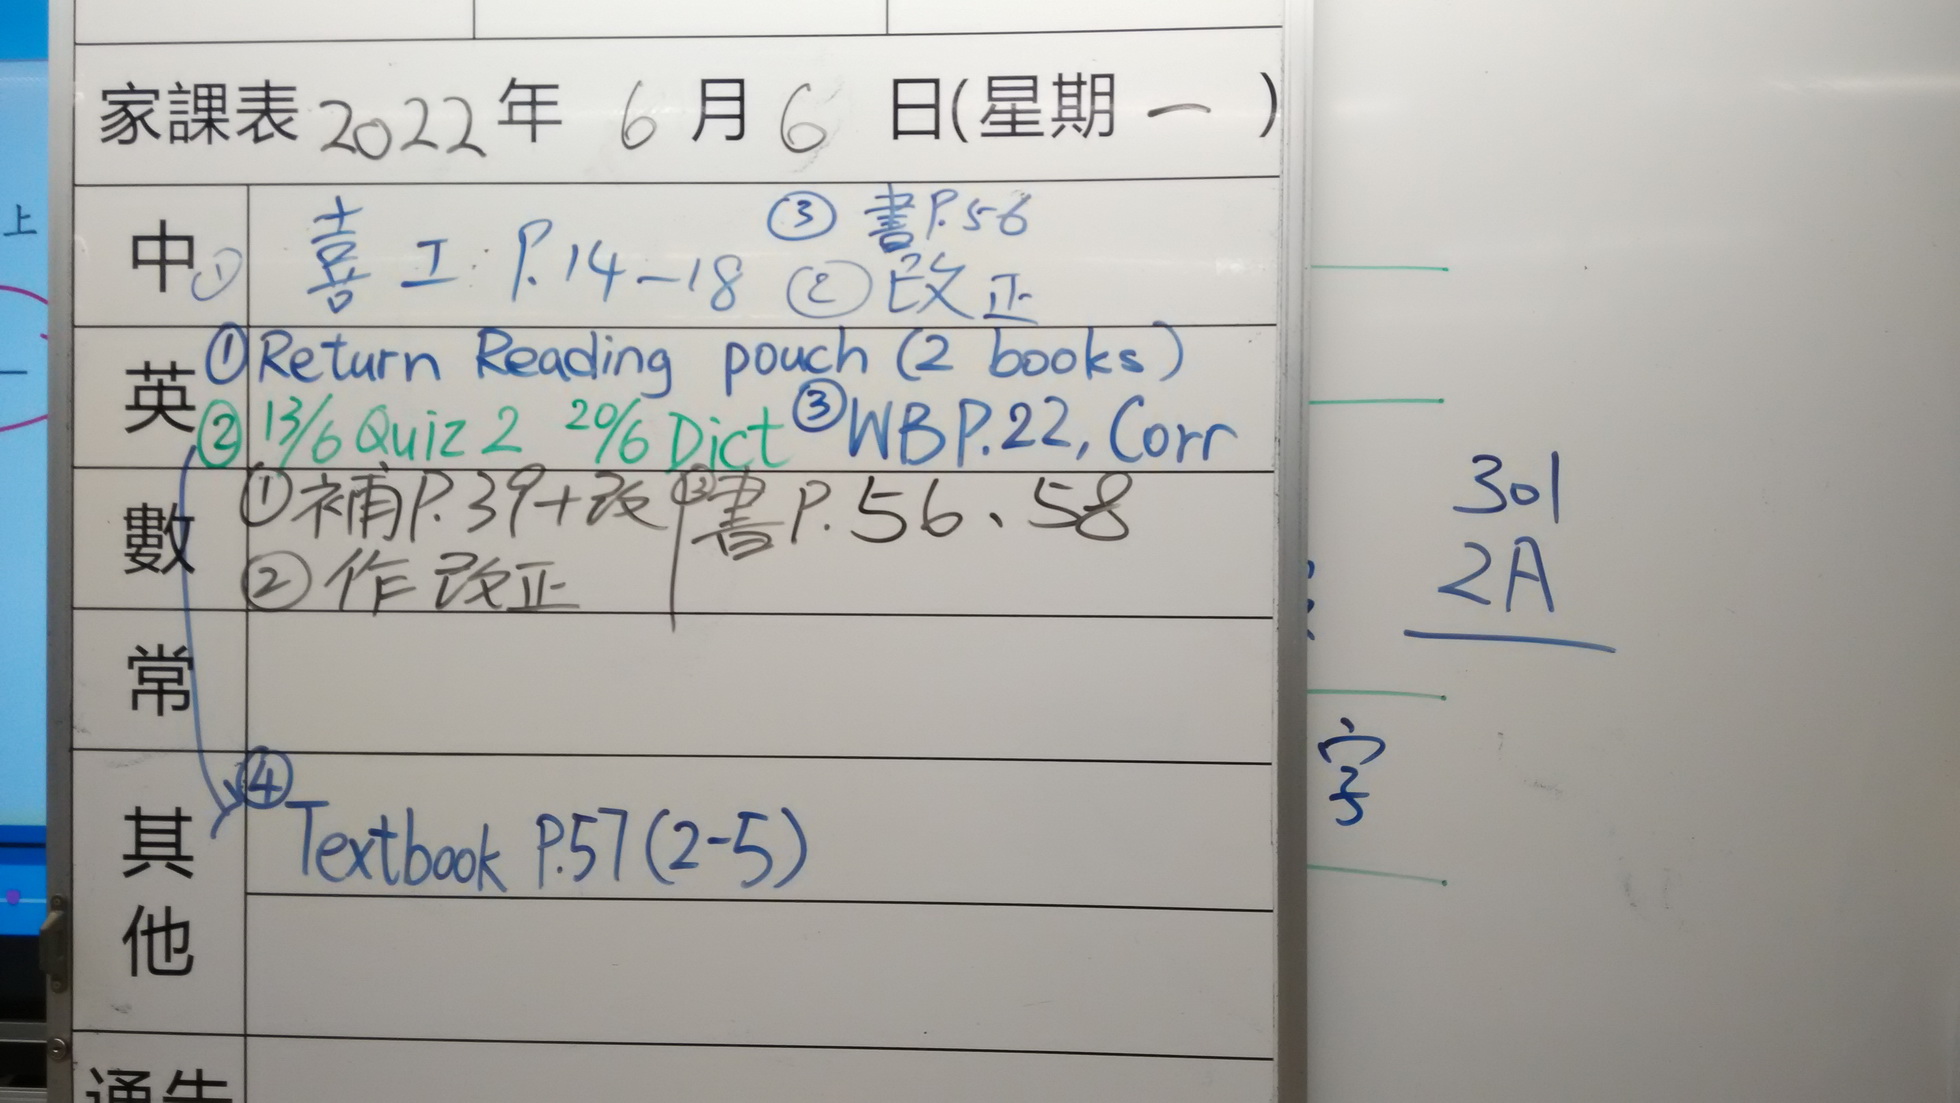 家課表 2022 年 6 月 6 日(星期 一 )
中 ① 喜 工: P.14-18 ② 改正 ③ 書P.56
英 ① Return Reading pouch (2 books)
② 13/6 Quiz 2 20/6 Dict ③ WB P.22, Corr
數 ① 補P.39+改 ③ 書 P. 56、58
② 作 改正
常
其他 ④ Textbook P.57 (2-5)
通告
上
301
2A
字